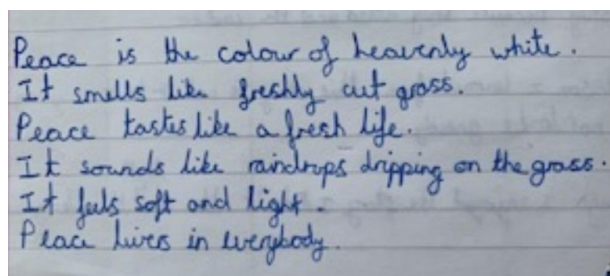 Peace is the colour of heavenly white.
It smells like freshly cut grass.
Peace tastes like a fresh life.
It sounds like raindrops dripping on the grass.
It feels soft and light.
Peace lives in everybody.